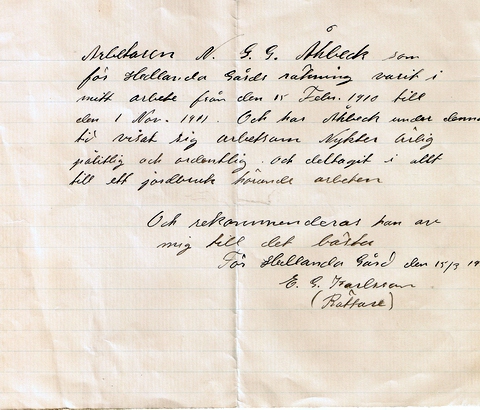 Arbetaren N. G. G. Åhbeck som
för Hellanda Gårds räkning varit i
mitt arbete från den 15 Febr. 1910 till
den 1 Nov. 1911. Och har Åhbeck under denna
tid visat sig arbetsam Nykter ärlig
pålitlig och ordentlig. och deltagit i allt
till ett jordbruk hörande arbeten
Och rekommenderas han av
mig till det bästa
För Hellanda Gård den 15/3 19
E. G. Karlsson
(Rättare)